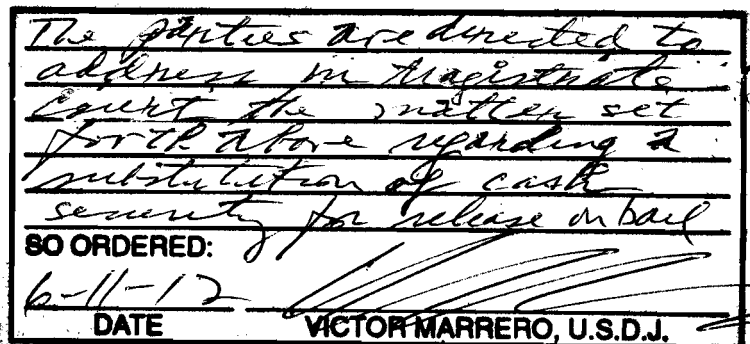 The parties are directed to
address in Magistrate
Court the matter set
forth above regarding a
substitution of cash
security for release on bail
SO ORDERED:
6-11-12
DATE VICTOR MARRERO, U.S.D.J.